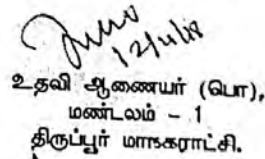 12/11/18
உதவி ஆணையர் (பொ),
மண்டலம் - 1
திருப்பூர் மாநகராட்சி.